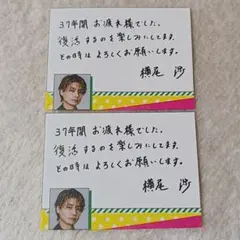 37年間 お疲れ様でした。
復活するのを楽しみにしてます。
その時は よろしくお願いします。
横尾 渉
37年間 お疲れ様でした。
復活するのを楽しみにしてます。
その時は よろしくお願いします。
横尾 渉